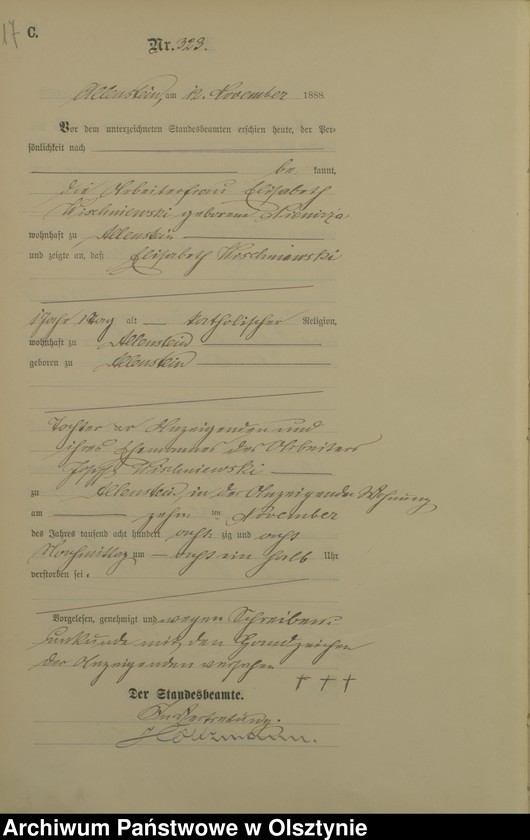 17 C.
Nr. 323.
Allenstein, am 12. November 1888.
Vor dem unterzeichneten Standesbeamten erschien heute, der Per-
sönlichkeit nach
be kannt,
die Arbeiterfrau Elisabeth
Wischniewski geborene
wohnhaft zu Allenstein
und zeigte an, daß Elisabeth Wischniewski
1 Jahr 1 Tag alt katholischer Religion,
wohnhaft zu Allenstein
geboren zu Allenstein
Tochter der Anzeigenden und
ihres Ehemannes des Arbeiters
Joseph Wischniewski
zu Allenstein in der Anzeigenden Wohnung
am zehn ten November
des Jahres tausend acht hundert acht zig und acht
Nachmittag um acht ein halb Uhr
verstorben sei.
Vorgelesen, genehmigt und wegen Schreibens
unkunde mit den Handzeichen
der Anzeigenden versehen
+ + +
Der Standesbeamte.
In Vertretung.
Holtzmann.
Archiwum Państwowe w Olsztynie